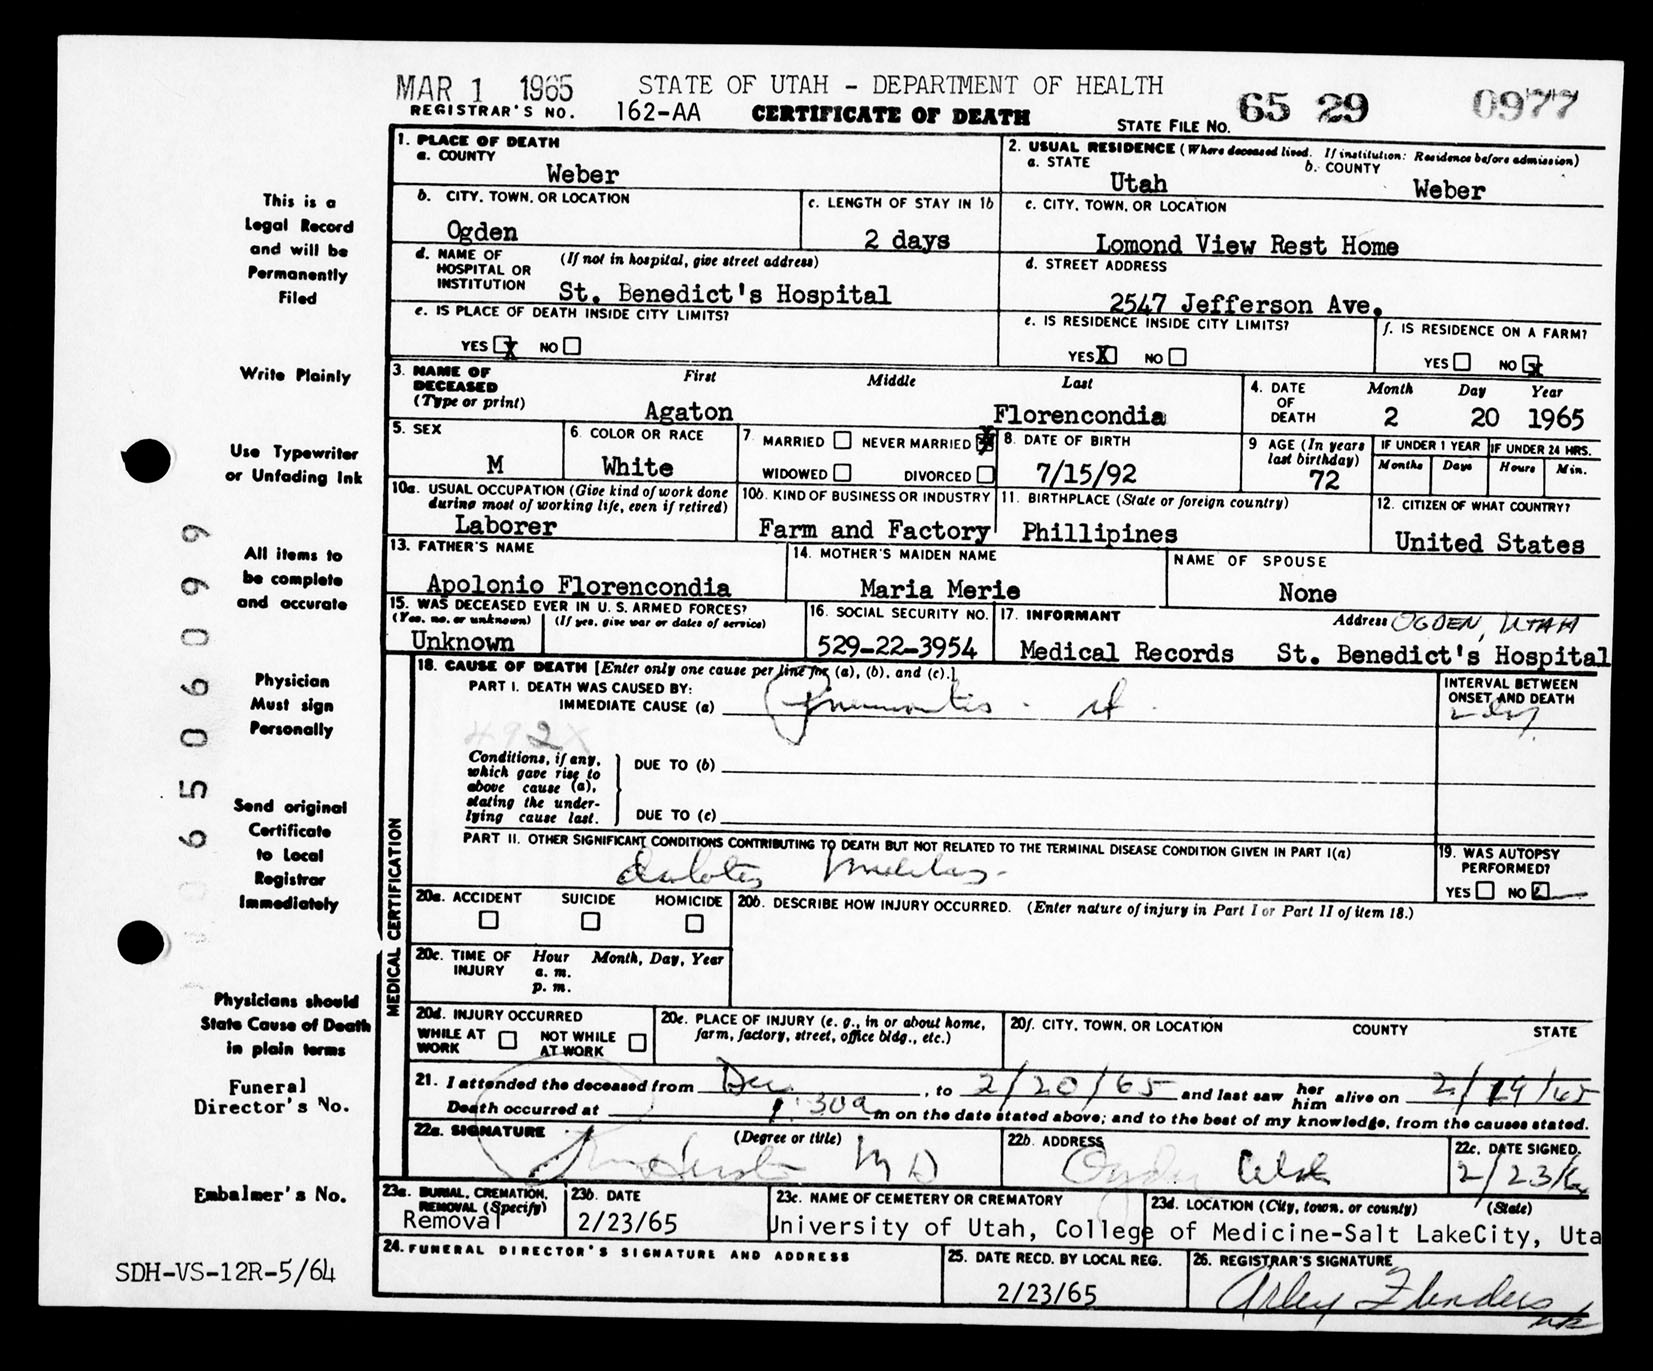 MAR 1 1965 STATE OF UTAH - DEPARTMENT OF HEALTH
REGISTRAR'S NO. 162-AA CERTIFICATE OF DEATH STATE FILE NO. 65 29 0977
This is a
Legal Record
and will be
Permanently
Filed
Write Plainly
Use Typewriter
or Unfading Ink
All items to
be complete
and accurate
Physician
Must sign
Personally
Send original
Certificate
to Local
Registrar
Immediately
Physicians should
State Cause of Death
in plain terms
Funeral
Director's No.
Embalmer's No.
SDH-VS-12R-5/64
6506099
1. PLACE OF DEATH
a. COUNTY
Weber
2. USUAL RESIDENCE (Where deceased lived. If institution: Residence before admission)
a. STATE b. COUNTY
Utah Weber
b. CITY, TOWN, OR LOCATION
Ogden
c. LENGTH OF STAY IN 1b
2 days
c. CITY, TOWN, OR LOCATION
Lomond View Rest Home
d. NAME OF HOSPITAL OR INSTITUTION (If not in hospital, give street address)
St. Benedict's Hospital
d. STREET ADDRESS
2547 Jefferson Ave.
e. IS PLACE OF DEATH INSIDE CITY LIMITS?
YES x NO
e. IS RESIDENCE INSIDE CITY LIMITS?
YES X NO
f. IS RESIDENCE ON A FARM?
YES NO x
3. NAME OF DECEASED (Type or print) First Middle Last
Agaton Florencondia
4. DATE OF DEATH Month Day Year
2 20 1965
5. SEX
M
6. COLOR OR RACE
White
7. MARRIED NEVER MARRIED X
WIDOWED DIVORCED
8. DATE OF BIRTH
7/15/92
9 AGE (In years last birthday)
72
IF UNDER 1 YEAR IF UNDER 24 HRS.
Months Days Hours Min.
10a. USUAL OCCUPATION (Give kind of work done during most of working life, even if retired)
Laborer
10b. KIND OF BUSINESS OR INDUSTRY
Farm and Factory
11. BIRTHPLACE (State or foreign country)
Phillipines
12. CITIZEN OF WHAT COUNTRY?
United States
13. FATHER'S NAME
Apolonio Florencondia
14. MOTHER'S MAIDEN NAME
Maria Merie
NAME OF SPOUSE
None
15. WAS DECEASED EVER IN U.S. ARMED FORCES?
(Yes, no, or unknown) (If yes, give war or dates of service)
Unknown
16. SOCIAL SECURITY NO.
529-22-3954
17. INFORMANT Address OGDEN, UTAH
Medical Records St. Benedict's Hospital
MEDICAL CERTIFICATION
18. CAUSE OF DEATH [Enter only one cause per line for (a), (b), and (c).]
PART I. DEATH WAS CAUSED BY:
IMMEDIATE CAUSE (a) Pneumonitis
INTERVAL BETWEEN ONSET AND DEATH
492X
Conditions, if any, which gave rise to above cause (a), stating the underlying cause last.
DUE TO (b)
DUE TO (c)
PART II. OTHER SIGNIFICANT CONDITIONS CONTRIBUTING TO DEATH BUT NOT RELATED TO THE TERMINAL DISEASE CONDITION GIVEN IN PART I(a)
diabetes Mellitus
19. WAS AUTOPSY PERFORMED?
YES NO
20a. ACCIDENT SUICIDE HOMICIDE
20b. DESCRIBE HOW INJURY OCCURRED. (Enter nature of injury in Part I or Part II of item 18.)
20c. TIME OF INJURY Hour Month, Day, Year
a. m.
p. m.
20d. INJURY OCCURRED
WHILE AT WORK NOT WHILE AT WORK
20e. PLACE OF INJURY (e. g., in or about home, farm, factory, street, office bldg., etc.)
20f. CITY, TOWN, OR LOCATION COUNTY STATE
21. I attended the deceased from Dec, to 2/20/65 and last saw her him alive on 2/19/65
Death occurred at 1:30a m on the date stated above; and to the best of my knowledge, from the causes stated.
22a. SIGNATURE (Degree or title)
M D
22b. ADDRESS
Ogden Utah
22c. DATE SIGNED
2/23/6
23a. BURIAL, CREMATION, REMOVAL (Specify)
Removal
23b. DATE
2/23/65
23c. NAME OF CEMETERY OR CREMATORY 23d. LOCATION (City, town, or county) (State)
University of Utah, College of Medicine-Salt LakeCity, Uta
24. FUNERAL DIRECTOR'S SIGNATURE AND ADDRESS
25. DATE RECD. BY LOCAL REG.
2/23/65
26. REGISTRAR'S SIGNATURE
Arley Flinders